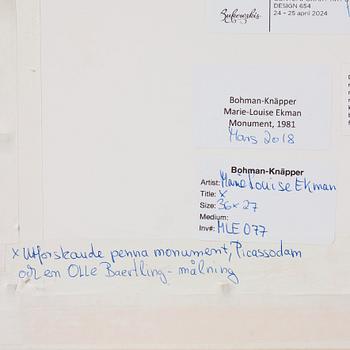 DESIGN 654
24 – 25 april 2024
Bukowskis
Bohman-Knäpper
Marie-Louise Ekman
Monument, 1981
Mars 2018
Bohman-Knäpper
Artist: Marie Louise Ekman
Title: x
Size: 36 x 27
Medium:
Inv#: MLE 077
x Utforskande penna monument, Picassodam
och en Olle Baertling-målning